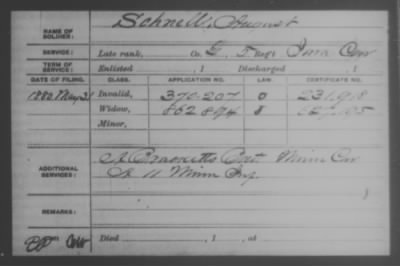 NAME OF SOLDIER: Schnell, August
SERVICE: Late rank, Co. G, Reg't Cav
TERM OF SERVICE: Enlisted , 1 Discharged , 1
DATE OF FILING. CLASS. APPLICATION NO. LAW CERTIFICATE NO.
1880 May 31 Invalid, 370.207 0 231.918
Widow, 862.894
Minor,
ADDITIONAL SERVICES: Brackett's Minn Cav
11 Minn Inf.
REMARKS:
Died , 1 , at